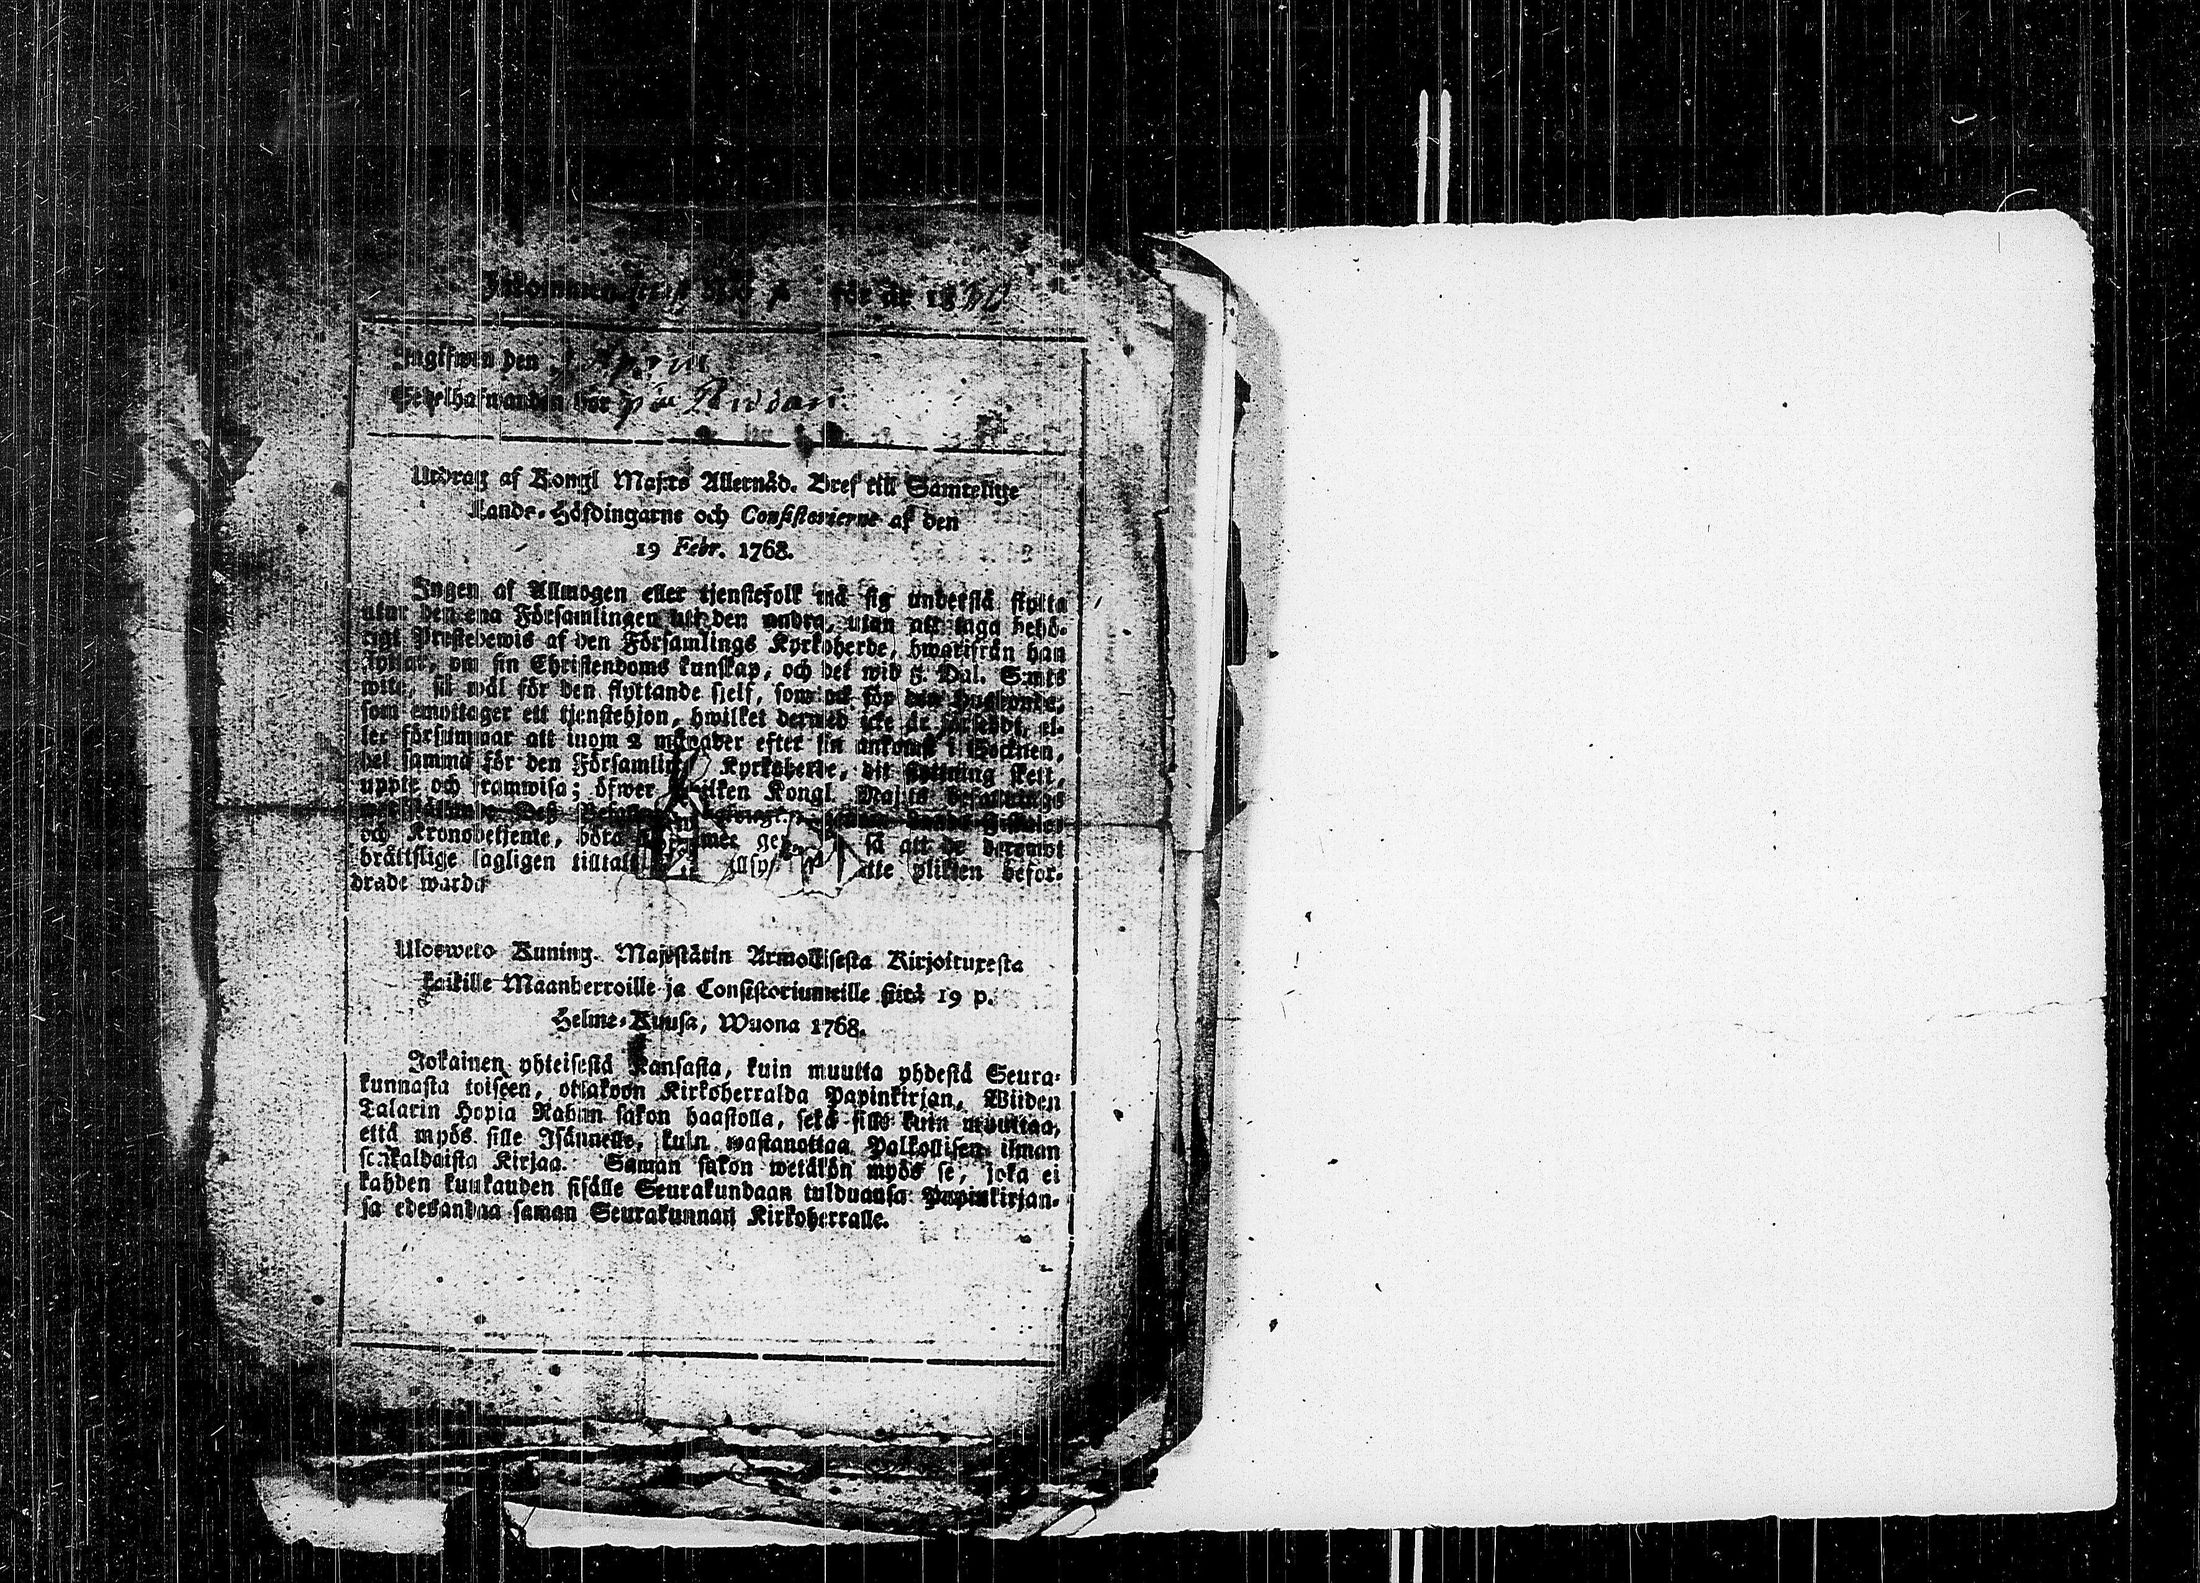 för år 18
Ingifwen den April
Sedelhafwanden bor på
Utdrag af Kongl Maj:ts Allernåd. Bref till Samtelige
Lands-Höfdingarne och Consistorierne af den
19 Febr. 1768.
Ingen af Allmogen eller tjenstefolk må sig understå flytta
utur den ena Församlingen uti den andra, utan att taga behö-
rigt Prestebewis af den Församlings Kyrkoherde, hwarifrån han
flyttat, om sin Christendoms kunskap, och det wid 5. Dal. S:mts
wite, så wäl för den flyttande sjelf, som ock för den
som emottager ett tjenstehjon, hwilket dermed icke är försedt, el-
ler försummar att inom 2 månader efter sin ankomst i Socknen,
det samma för den Församlings Kyrkoherde, dit flyttning skett,
uppte och framwisa; öfwer hwilken Kongl. Maj:ts befallnings
och Kronobetjente, böra så att de deremot
bråttslige lagligen tilltalt plikten befor-
drade warda
Ulosweto Kuning. Majestätin Armollisesta Kirjoituxesta
kaikille Maanherroille ja Consistoriumeille siitä 19 p.
Helme-Kuusa, Wuona 1768.
Jokainen yhteisestä Kansasta, kuin muutta yhdestä Seura-
kunnasta toiseen, ottakoon Kirkoherralda Papinkirjan, Wiiden
Talarin Hopia Rahan sakon haastolla, sekä sille kuin muuttaa,
että myös sille Isännelle, kuin wastanottaa Palkollisen ilman
senkaldaista Kirjaa. Saman sakon wetäkön myös se, joka ei
kahden kuukauden sisälle Seurakundaan tulduansa Papinkirjan-
sa edesandaa saman Seurakunnan Kirkoherralle.